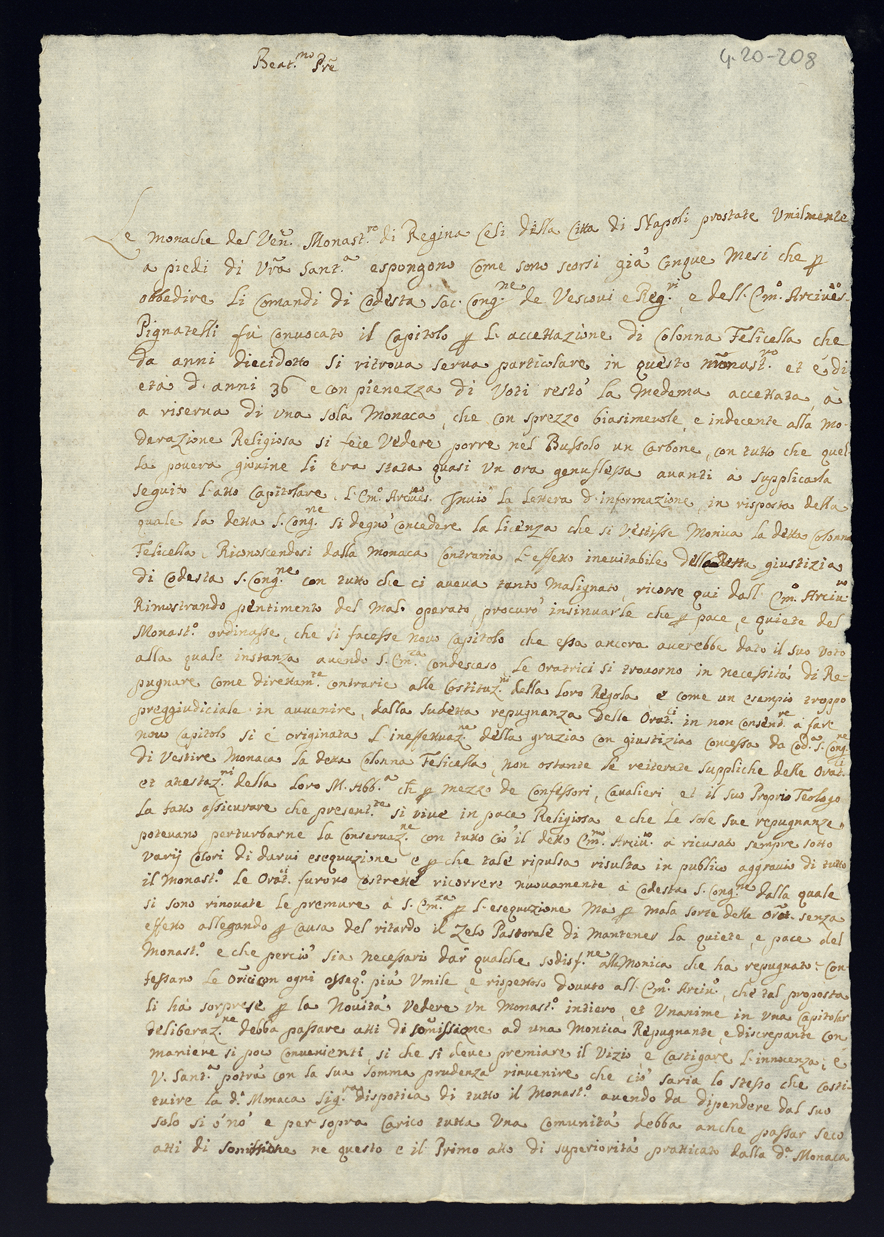 Beat.mo Prẽ
4.20-208
Le Monache del Ven. Monast.ro di Regina Celi della Citta di Napoli prostate Umilmente
a piedi di Vrã Sant.a espongono come sono scorsi già cinque Mesi che p
obbedire li comandi di codesta Sac. Cong.ne de Vescovi e Reg.ri, e dell. Em.o Arcives.
Pignatelli fù convocato il Capitolo p l. accettazione di Colonna Felicella che
da anni dieci dotto si ritrova serva particolare in questo Monast.ro et è di
età d. anni 36 e con pienezza di Voti restò la medema accettata, à
a riserva di una sola Monaca, che con sprezzo biasimevole, e indecente alla mo-
derazione Religiosa si fece Vedere porre nel Bussolo un Carbone, con tutto che quel-
la povera giovine li era stata quasi Un ora genuflessa avanti a supplicarla
seguito l'atto Capitolare, l. Em.o Arcives. Inviò la lettera d. informazione, in risposta della
quale la detta S. Cong.ne si degnò concedere la licenza che si vestisse Monica la detta Colonna
Felicella. Riconoscendosi dalla Monaca Contraria l. effetto inevitabile della retta giustizia
di Codesta S. Cong.ne con tutto che ci aveva tanto Malignato, ricorse qui dall. Em.o Arciv.o
Rimostrando pentimento del Mal. operato, procurò insinuarle che p pace, e quiete del
Monast.o ordinasse, che si facesse novo Capitolo che essa ancora averebbe dato il suo Voto
alla quale instanza avendo S. Em.za condesceso, le Oratrici si trovorno in necessità di Re-
pugnare come direttam.te contrarie alle Costituz.ni della loro Regola e come un esempio troppo
preggiudiciale in avvenire, dalla sudetta repugnanza delle Orat.ci in non consend.re a fare
novo Capitolo si è originata l. ineffettuaz.ne della grazia con giustizia concessa da Cod.a S. Cong.ne
di Vestire Monaca la detta Colonna Felicella, non ostante le reiterate suppliche delle Orat.ci
et attestaz.ni della loro M. Abb.a ch p mezzo de Confessori, Cavalieri et il suo Proprio Teologo
la fatto assicurare che present.te si vive in pace Religiosa e che le sole sue repugnanze
potevano perturbarne la Conservaz.ne con tutto ciò il detto Em.mo Arciv.o à ricusato sempre sotto
varij Colori di darvi esequzione e p che tale ripulsa risulta in publico aggravio di tutto
il Monast.o le Orat.ci furono costrette ricorrere nuovamente a Codesta S. Cong.ne dalla quale
si sono rinovate le premure à S. Em.za p l. esequzione Ma p mala sorte delle Orat. senza
effetto allegando p causa del ritardo il Zelo Pastorale di mantener la quiete, e, pace del
Monast.o e che perciò sia necessario dar qualche sodisf.ne alla Monica che ha repugnato: Con-
fessano le Orici con ogni osseq.o più Umile, e rispettoso dovuto all. Em.o Arciv.o, che tal proposta
li hà sorprese p la Novità Vedere un Monast.o intiero, et Unanime in una Capitolar
deliberaz.ne debba passare atti di somissione ad una Monica Repugnante, e discrepante con
maniere si poco convenienti, si che si deve premiare il Vizio, e castigare l. innocenza, e
V. Sant.a potrà con la sua somma prudenza rinvenire che ciò saria lo stesso che costi-
tuire la d.a Monaca Sig.ra dispotica di tutto il Monast.o avendo da dipendere dal suo
solo si ò nò e per sopra carico tutta una Comunità debba anche passar seco
atti di somissione ne questo è il Primo atto di superiorità pratticato dalla d.a Monaca